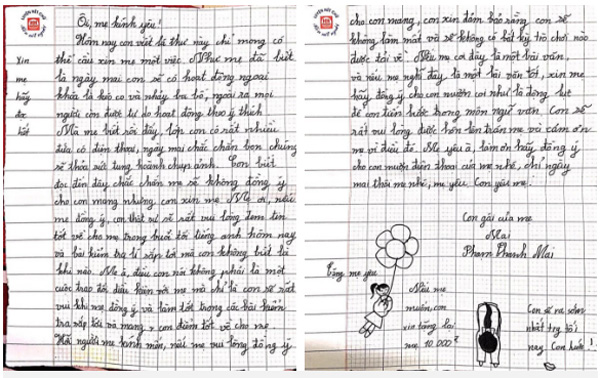 Ôi, mẹ kính yêu!
Hôm nay con viết lá thư này chỉ mong có
thể cầu xin mẹ một việc. Như mẹ đã biết
là ngày mai con sẽ có hoạt động ngoại
khóa là kéo co và nhảy ba bố, ngoài ra mọi
người còn được tự do hoạt động theo ý thích
Mà mẹ biết rồi đấy, lớp con có rất nhiều
đứa có điện thoại, ngày mai chắc chắn bọn chúng
sẽ thỏa sức tung hoành chụp ảnh. Con biết
đọc đến đây chắc chắn mẹ sẽ không đồng ý
cho con mang nhưng con xin mẹ. Mẹ ơi, nếu
mẹ đồng ý, con thật sự sẽ rất vui lòng đem tin
tốt về cho mẹ trong buổi tối tiếng anh hôm nay
và bài kiểm tra lí sắp tới mà con không biết là
khi nào. Mẹ à, đấy con nói không phải là một
cuộc trao đổi, đấu kiện với mẹ mà chỉ là con sẽ rất
vui khi mẹ đồng ý và làm tốt trong các bài kiểm
tra sắp tới và mang con điểm tốt về cho mẹ.
Hỡi người mẹ kính mến, nếu mẹ vui lòng đồng ý
Xin
mẹ
hãy
đọc
hết
cho con mang, con xin đảm bảo rằng con sẽ
không làm mất và sẽ không có bất kỳ trò chơi nào
được tải về. Nếu mẹ coi đây là một bài văn
và nếu mẹ nghĩ đây là một bài văn tốt, xin mẹ
hãy đồng ý cho con mượn coi như là động lực
để con tiến bước trong môn ngữ văn. Con sẽ
rất vui lòng được hôn lên trán mẹ và cảm ơn
mẹ vì điều đó. Mẹ yêu à, làm ơn hãy đồng ý
cho con mượn điện thoại của mẹ nhé, chỉ ngày
mai thôi mẹ nhé, mẹ yêu. Con yêu mẹ!
Con gái của mẹ
Mai
Phạm Thanh Mai
Tặng mẹ yêu
Nếu mẹ
muốn, con
xin tặng lại
mẹ 10.000đ
Con sẽ ra sớm
nhất trg tối
nay Con hứa!